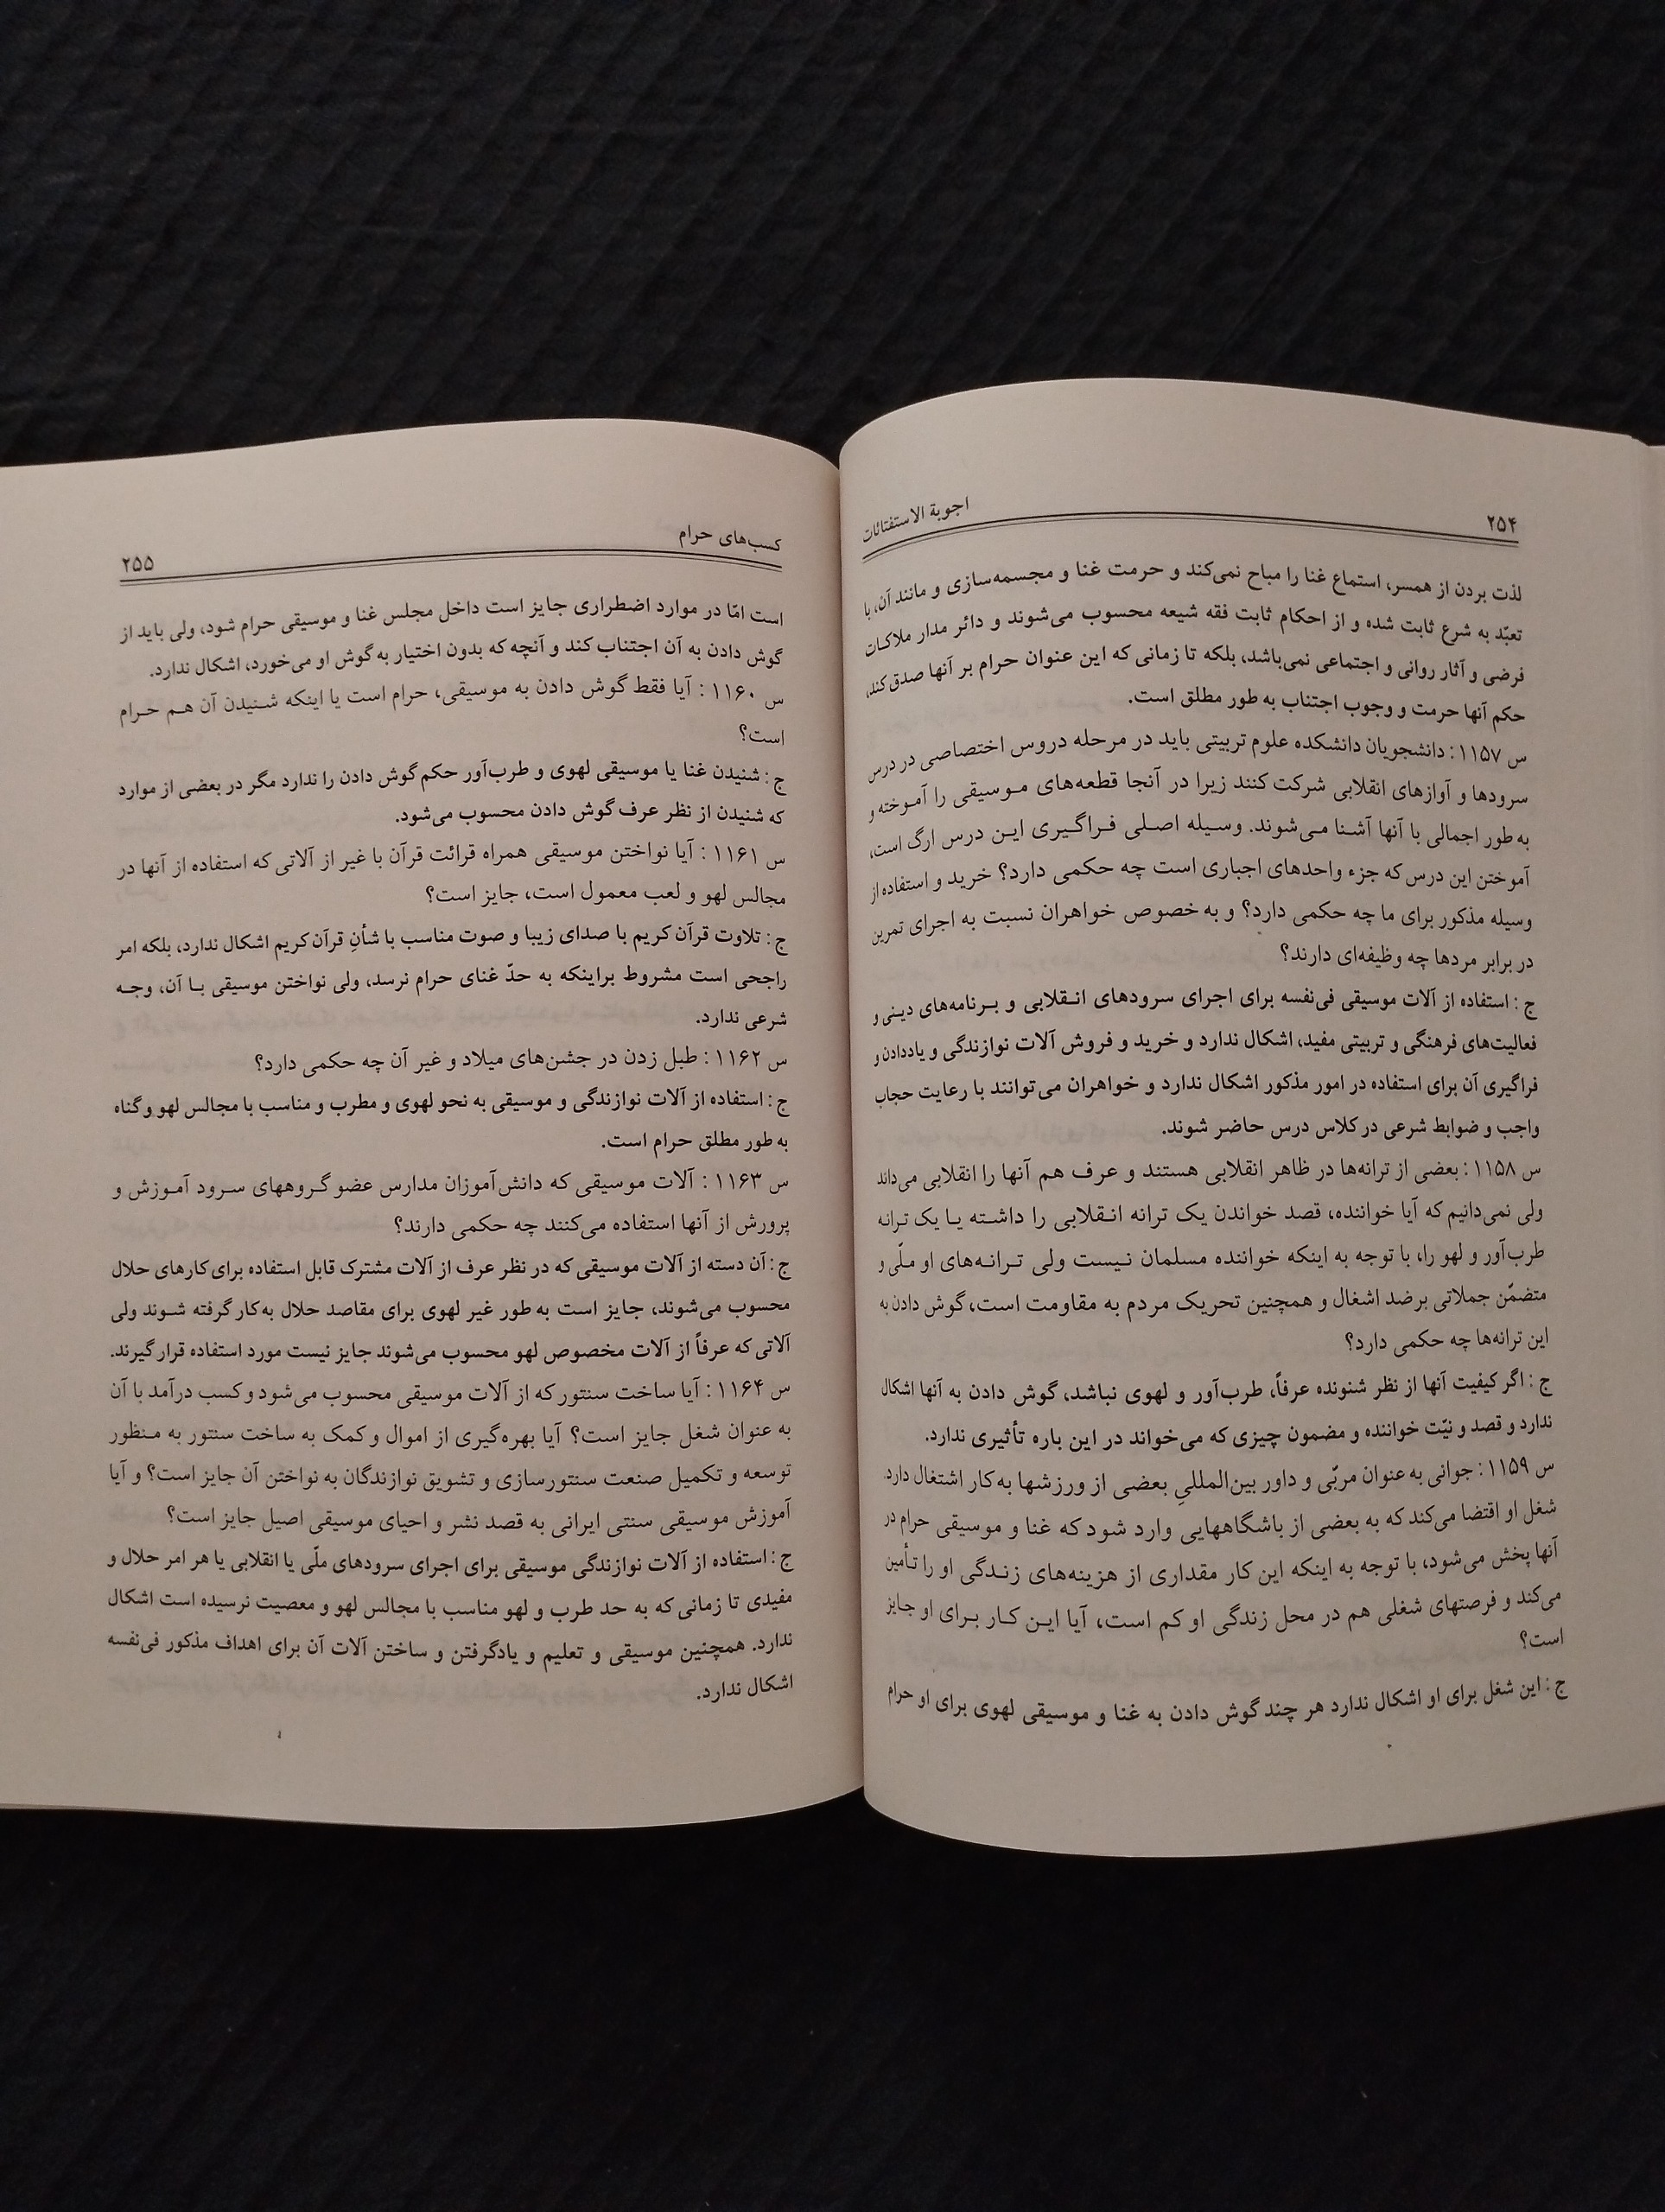 ۲۵۴
اجوبة الاستفتائات
لذت بردن از همسر، استماع غنا را مباح نمی‌کند و حرمت غنا و مجسمه‌سازی و مانند آن، با
تعبّد به شرع ثابت شده و از احکام ثابت فقه شیعه محسوب می‌شوند و دائر مدار ملاکات
فرضی و آثار روانی و اجتماعی نمی‌باشد، بلکه تا زمانی که این عنوان حرام بر آنها صدق کند،
حکم آنها حرمت و وجوب اجتناب به طور مطلق است.
س ۱۱۵۷: دانشجویان دانشکده علوم تربیتی باید در مرحله دروس اختصاصی در درس
سرودها و آوازهای انقلابی شرکت کنند زیرا در آنجا قطعه‌های موسیقی را آموخته و
به طور اجمالی با آنها آشنا می‌شوند. وسیله اصلی فراگیری این درس ارگ است،
آموختن این درس که جزء واحدهای اجباری است چه حکمی دارد؟ خرید و استفاده از
وسیله مذکور برای ما چه حکمی دارد؟ و به خصوص خواهران نسبت به اجرای تمرین
در برابر مردها چه وظیفه‌ای دارند؟
ج: استفاده از آلات موسیقی فی‌نفسه برای اجرای سرودهای انقلابی و برنامه‌های دینی و
فعالیت‌های فرهنگی و تربیتی مفید، اشکال ندارد و خرید و فروش آلات نوازندگی و یاددادن و
فراگیری آن برای استفاده در امور مذکور اشکال ندارد و خواهران می‌توانند با رعایت حجاب
واجب و ضوابط شرعی در کلاس درس حاضر شوند.
س ۱۱۵۸: بعضی از ترانه‌ها در ظاهر انقلابی هستند و عرف هم آنها را انقلابی می‌داند
ولی نمی‌دانیم که آیا خواننده، قصد خواندن یک ترانه انقلابی را داشته یا یک ترانه
طرب‌آور و لهو را، با توجه به اینکه خواننده مسلمان نیست ولی ترانه‌های او ملّی و
متضمّن جملاتی برضد اشغال و همچنین تحریک مردم به مقاومت است، گوش دادن به
این ترانه‌ها چه حکمی دارد؟
ج: اگر کیفیت آنها از نظر شنونده عرفاً، طرب‌آور و لهوی نباشد، گوش دادن به آنها اشکال
ندارد و قصد و نیّت خواننده و مضمون چیزی که می‌خواند در این باره تأثیری ندارد.
س ۱۱۵۹: جوانی به عنوان مربّی و داور بین‌المللیِ بعضی از ورزشها به کار اشتغال دارد.
شغل او اقتضا می‌کند که به بعضی از باشگاههایی وارد شود که غنا و موسیقی حرام در
آنها پخش می‌شود، با توجه به اینکه این کار مقداری از هزینه‌های زندگی او را تأمین
می‌کند و فرصتهای شغلی هم در محل زندگی او کم است، آیا این کار برای او جایز
است؟
ج: این شغل برای او اشکال ندارد هر چند گوش دادن به غنا و موسیقی لهوی برای او حرام
کسب‌های حرام
۲۵۵
است امّا در موارد اضطراری جایز است داخل مجلس غنا و موسیقی حرام شود، ولی باید از
گوش دادن به آن اجتناب کند و آنچه که بدون اختیار به گوش او می‌خورد، اشکال ندارد.
س ۱۱۶۰: آیا فقط گوش دادن به موسیقی، حرام است یا اینکه شنیدن آن هم حرام
است؟
ج: شنیدن غنا یا موسیقی لهوی و طرب‌آور حکم گوش دادن را ندارد مگر در بعضی از موارد
که شنیدن از نظر عرف گوش دادن محسوب می‌شود.
س ۱۱۶۱: آیا نواختن موسیقی همراه قرائت قرآن با غیر از آلاتی که استفاده از آنها در
مجالس لهو و لعب معمول است، جایز است؟
ج: تلاوت قرآن کریم با صدای زیبا و صوت مناسب با شأنِ قرآن کریم اشکال ندارد، بلکه امر
راجحی است مشروط براینکه به حدّ غنای حرام نرسد، ولی نواختن موسیقی با آن، وجه
شرعی ندارد.
س ۱۱۶۲: طبل زدن در جشن‌های میلاد و غیر آن چه حکمی دارد؟
ج: استفاده از آلات نوازندگی و موسیقی به نحو لهوی و مطرب و مناسب با مجالس لهو و گناه
به طور مطلق حرام است.
س ۱۱۶۳: آلات موسیقی که دانش‌آموزان مدارس عضو گروههای سرود آموزش و
پرورش از آنها استفاده می‌کنند چه حکمی دارند؟
ج: آن دسته از آلات موسیقی که در نظر عرف از آلات مشترک قابل استفاده برای کارهای حلال
محسوب می‌شوند، جایز است به طور غیر لهوی برای مقاصد حلال به‌کار گرفته شوند ولی
آلاتی که عرفاً از آلات مخصوص لهو محسوب می‌شوند جایز نیست مورد استفاده قرار گیرند.
س ۱۱۶۴: آیا ساخت سنتور که از آلات موسیقی محسوب می‌شود و کسب درآمد با آن
به عنوان شغل جایز است؟ آیا بهره‌گیری از اموال و کمک به ساخت سنتور به منظور
توسعه و تکمیل صنعت سنتورسازی و تشویق نوازندگان به نواختن آن جایز است؟ و آیا
آموزش موسیقی سنتی ایرانی به قصد نشر و احیای موسیقی اصیل جایز است؟
ج: استفاده از آلات نوازندگی موسیقی برای اجرای سرودهای ملّی یا انقلابی یا هر امر حلال و
مفیدی تا زمانی که به حد طرب و لهو مناسب با مجالس لهو و معصیت نرسیده است اشکال
ندارد. همچنین موسیقی و تعلیم و یادگرفتن و ساختن آلات آن برای اهداف مذکور فی‌نفسه
اشکال ندارد.